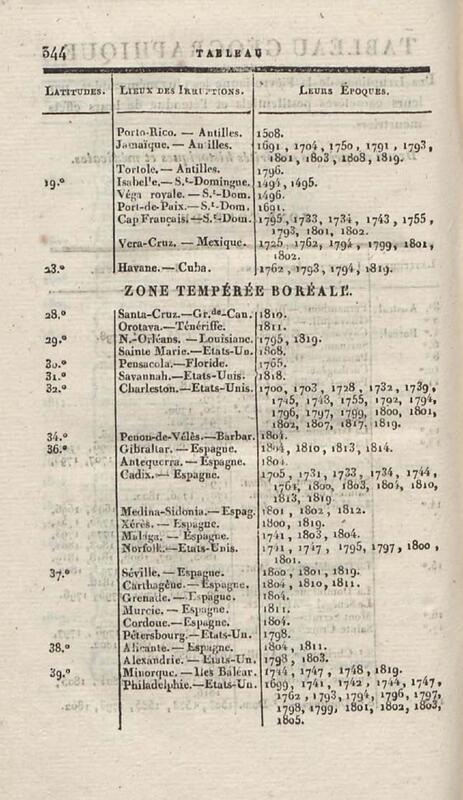 344 TABLEAU
LATITUDES. LIEUX DES IRRUPTIONS. LEURS ÉPOQUES.
Porto-Rico. — Antilles. 1508.
Jamaïque. — Antilles. 1691, 1704, 1750, 1791, 1793,
1801, 1803, 1808, 1819.
Tortole. — Antilles. 1796.
19.° Isabelle. — S.t-Domingue. 1494, 1495.
Véga royale. — S.t-Dom. 1496.
Port-de-Paix. — S.t-Dom. 1691.
Cap Français. — S.t-Dom. 1795, 1733, 1734, 1743, 1755,
1793, 1801, 1802.
Vera-Cruz. — Mexique. 1725, 1762, 1794, 1799, 1801,
1802.
23.° Havane. — Cuba. 1762, 1793, 1794, 1819.
ZONE TEMPÉRÉE BORÉALE.
28.° Santa-Cruz. — Gr.de-Can. 1810.
Orotava. — Ténériffe. 1811.
29.° N.-Orléans. — Louisiane. 1795, 1819.
Sainte Marie. — Etats-Un. 1808.
30.° Pensacola. — Floride. 1765.
31.° Savannah. — Etats-Unis. 1818.
32.° Charleston. — Etats-Unis. 1700, 1703, 1728, 1732, 1739,
1745, 1748, 1755, 1792, 1794,
1796, 1797, 1799, 1800, 1801,
1802, 1807, 1817, 1819.
34.° Penon-de-Vélès. — Barbar. 1804.
36.° Gibraltar. — Espagne. 1804, 1810, 1813, 1814.
Antequerra. — Espagne. 1804.
Cadix. — Espagne. 1705, 1731, 1733, 1734, 1744,
1764, 1800, 1803, 1804, 1810,
1813, 1819.
Medina-Sidonia. — Espag. 1801, 1802, 1812.
Xérès. — Espagne. 1800, 1819.
Malaga. — Espagne. 1741, 1803, 1804.
Norfolk. — Etats-Unis. 1741, 1747, 1795, 1797, 1800,
1801.
37.° Séville. — Espagne. 1800, 1801, 1819.
Carthagène. — Espagne. 1804, 1810, 1811.
Grenade. — Espagne. 1804.
Murcie. — Espagne. 1811.
Cordoue. — Espagne. 1804.
Pétersbourg. — Etats-Un. 1798.
38.° Alicante. — Espagne. 1804, 1811.
Alexandrie. — Etats-Un. 1798, 1803.
39.° Minorque. — Iles Baléar. 1744, 1747, 1748, 1819.
Philadelphie. — Etats-Un. 1699, 1741, 1742, 1744, 1747,
1762, 1793, 1794, 1796, 1797,
1798, 1799, 1801, 1802, 1803,
1805.